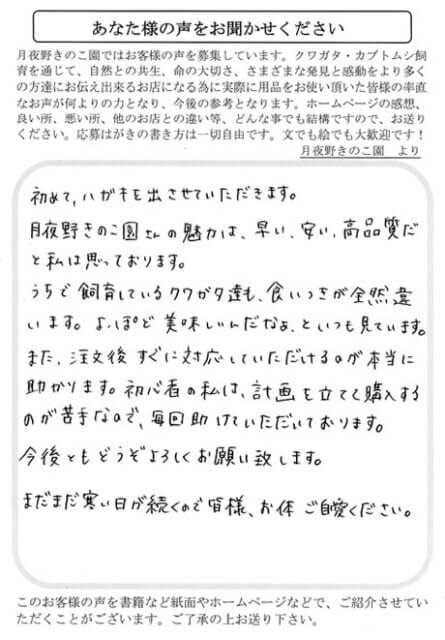 あなた様の声をお聞かせください
月夜野きのこ園ではお客様の声を募集しています。クワガタ・カブトムシ飼
育を通じて、自然との共生、命の大切さ、さまざまな発見と感動をより多く
の方達にお伝え出来るお店になる為に実際に用品をお使い頂いた皆様の率直
なお声が何よりの力となり、今後の参考となります。ホームページの感想、
良い所、悪い所、他のお店との違い等、どんな事でも結構ですので、お送り
ください。応募はがきの書き方は一切自由です。文でも絵でも大歓迎です！
月夜野きのこ園　より
初めて、ハガキを出させていただきます。
月夜野きのこ園さんの魅力は、早い、安い、高品質だ
と私は思っております。
うちで飼育しているクワガタ達も、食いつきが全然違
います。よっぽど美味しいんだなぁ、といつも見ています。
また、注文後すぐに対応していただけるのが本当に
助かります。初心者の私は、計画を立てて購入する
のが苦手なので、毎回助けていただいております。
今後ともどうぞよろしくお願い致します。
まだまだ寒い日が続くので皆様、お体ご自愛ください。
このお客様の声を書籍など紙面やホームページなどで、ご紹介させてい
ただくことがございます。ご了承の上お送り下さい。